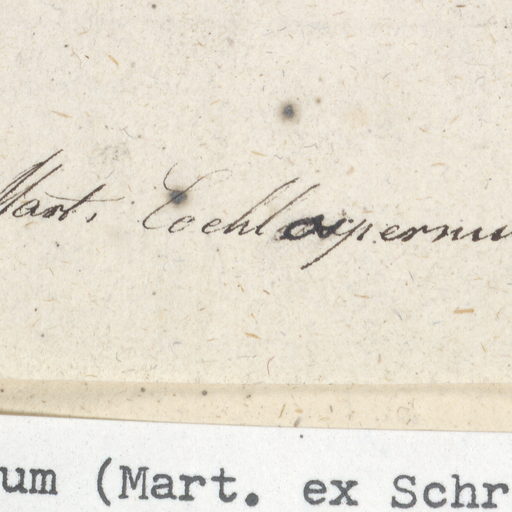 Mart. Cochlospermu
um (Mart. ex Schr